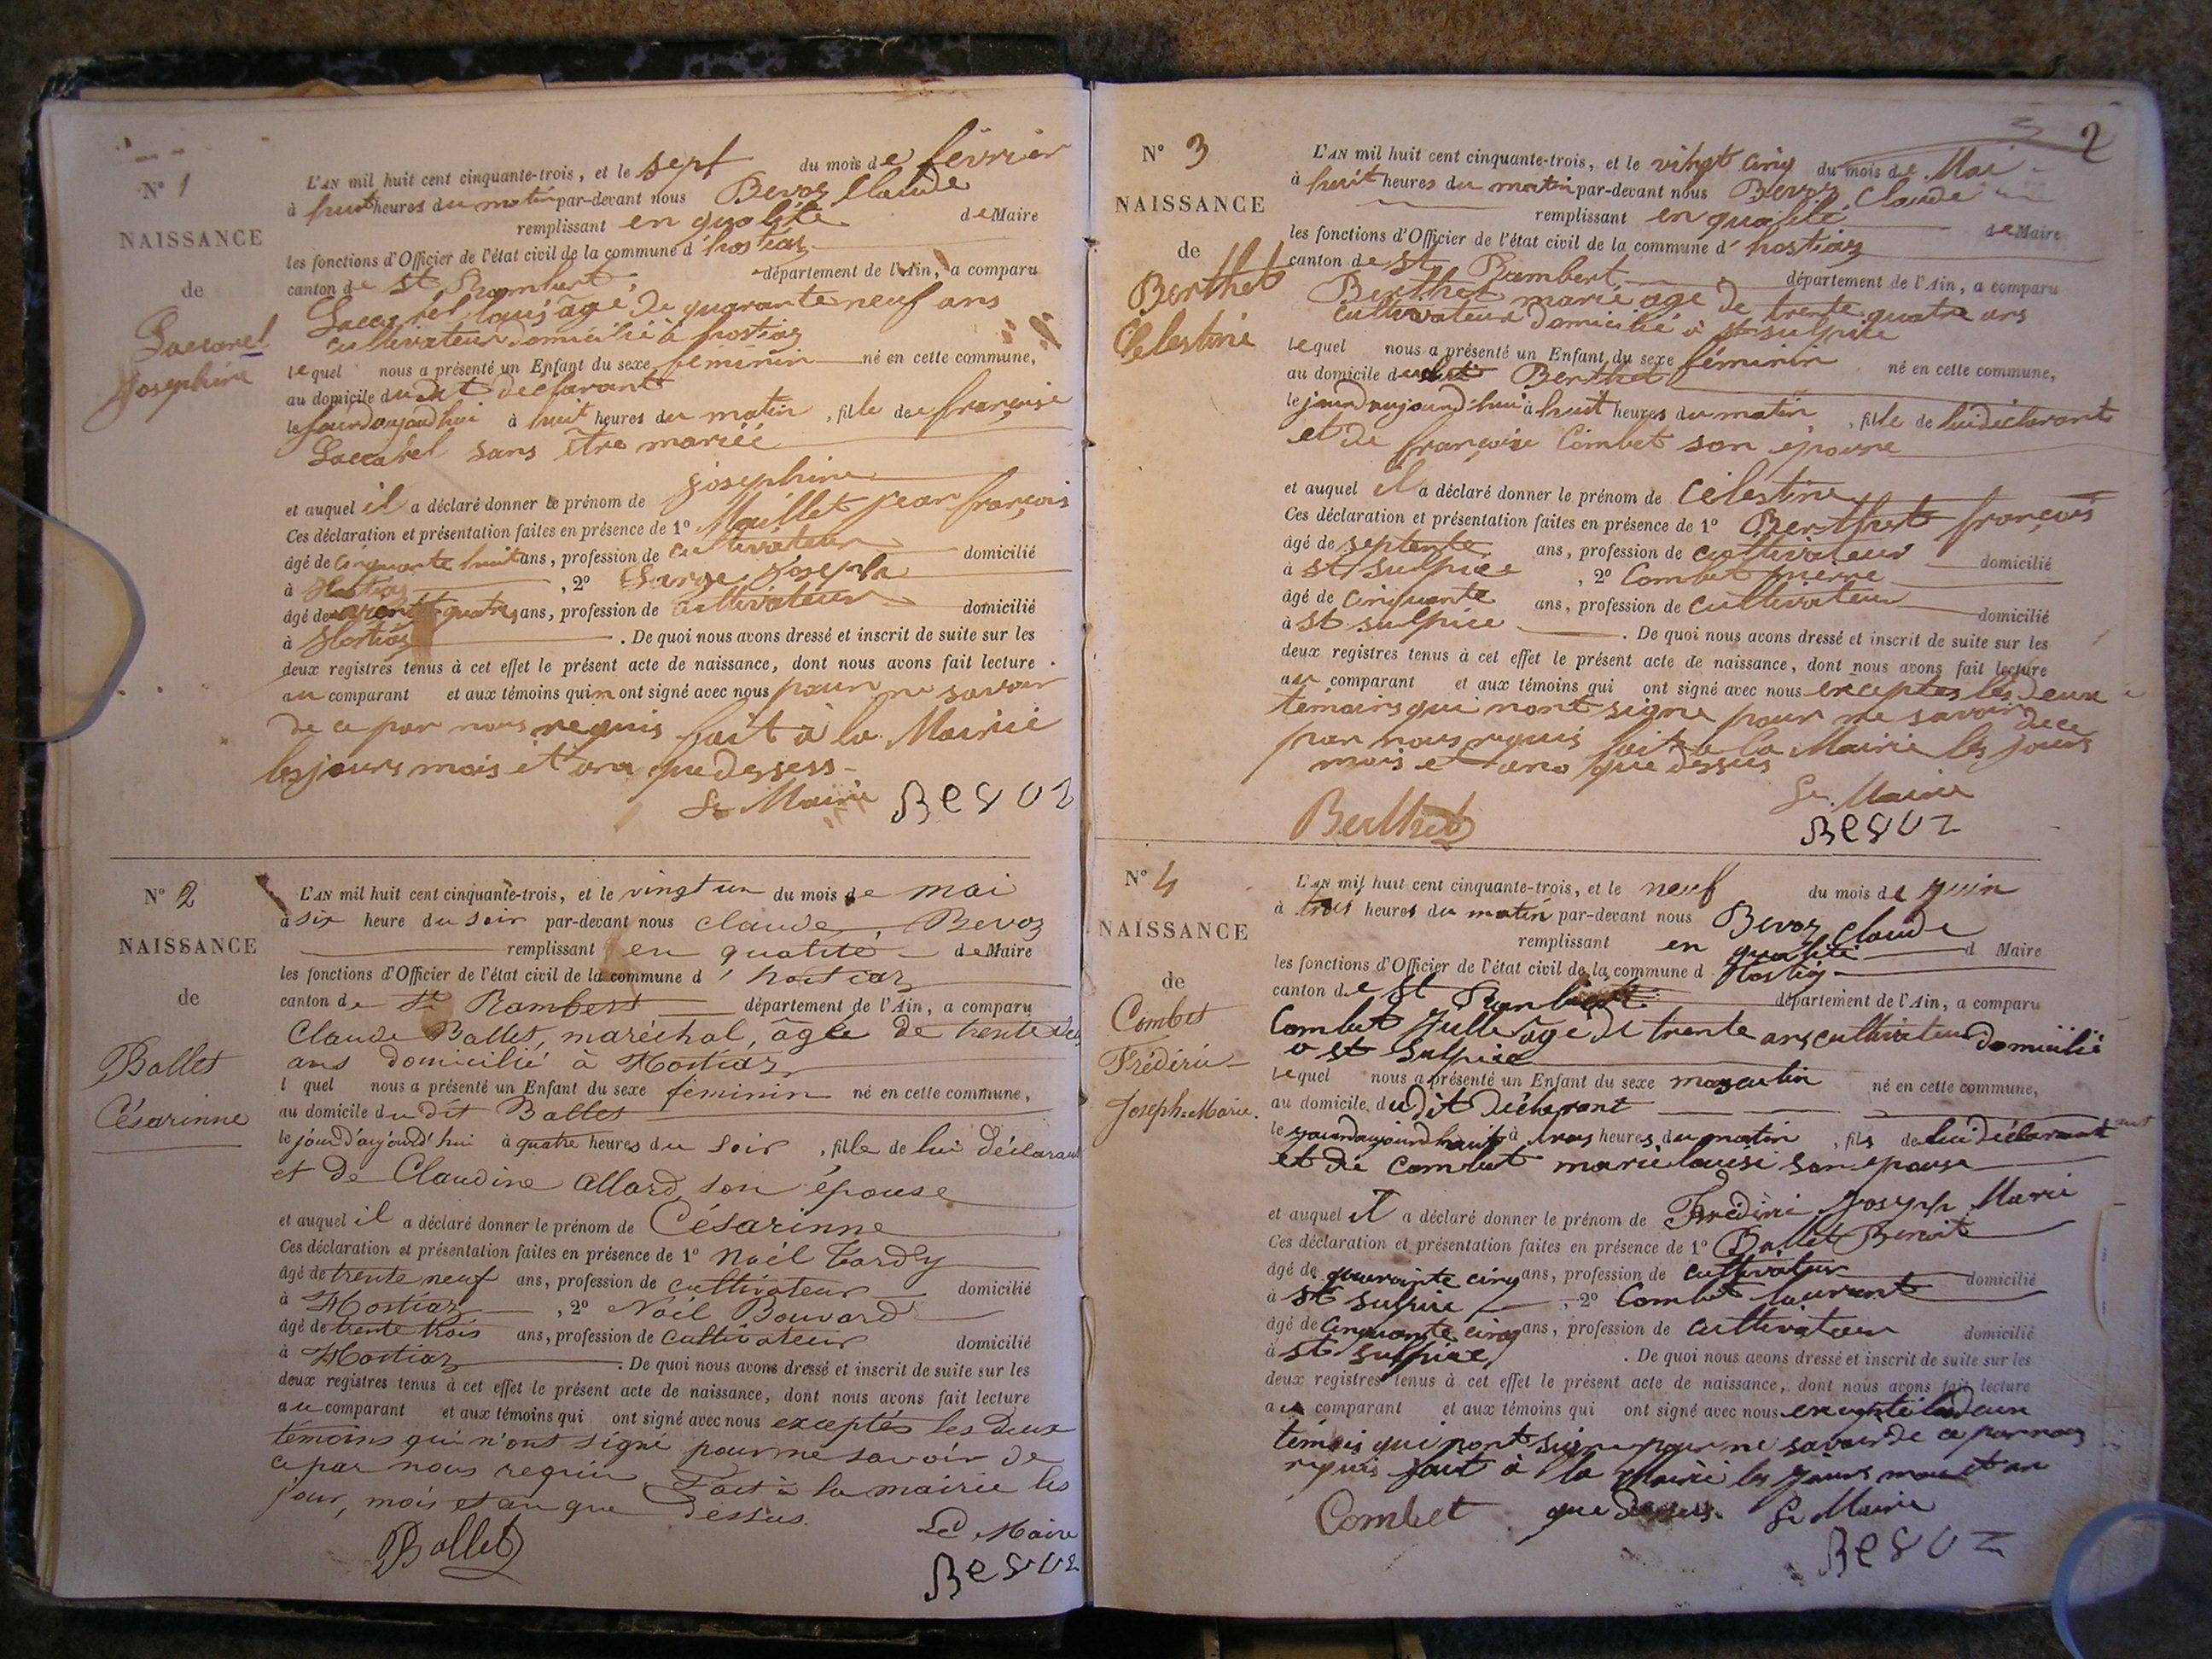 N° 1
NAISSANCE
de
Josephine
L'AN mil huit cent cinquante-trois, et le sept du mois de février
à huit heures du matin par-devant nous Bevoz Claude
remplissant en qualité de Maire
les fonctions d'Officier de l'état civil de la commune d' hostiaz
canton de St Rambert département de l'Ain, a comparu
louis âgé de quarante neuf ans
cultivateur domicilié à hostiaz
lequel nous a présenté un Enfant du sexe féminin né en cette commune,
au domicile du dit déclarant
le jourdaujourdhui à huit heures du matin, fille de françoise
sans être mariée
et auquel il a déclaré donner le prénom de josephine
Ces déclaration et présentation faites en présence de 1° Maillet jean françois
âgé de cinquante huit ans, profession de cultivateur domicilié
à Hostiaz, 2° Joseph
âgé de quatre ans, profession de cultivateur domicilié
à Hostiaz. De quoi nous avons dressé et inscrit de suite sur les
deux registres tenus à cet effet le présent acte de naissance, dont nous avons fait lecture
au comparant et aux témoins qui n ont signé avec nous pour ne savoir
de ce par nous requis fait à la Mairie
les jours mois et ans que dessess
Le Maire Bevoz
N° 2
NAISSANCE
de
Ballet
Césarinne
L'AN mil huit cent cinquante-trois, et le vingt un du mois de mai
à six heure du soir par-devant nous Claude, Bevoz
remplissant en qualité de Maire
les fonctions d'Officier de l'état civil de la commune d' hostiaz
canton de St Rambert département de l'Ain, a comparu
Claude Ballet, maréchal, âgée de trente
ans domicilié à Hostiaz
l quel nous a présenté un Enfant du sexe féminin né en cette commune,
au domicile du dit Ballet
le jour d'aujourd'hui à quatre heures du soir, fille de lui déclarant
et de Claudine Allard, son épouse
et auquel il a déclaré donner le prénom de Césarinne
Ces déclaration et présentation faites en présence de 1° Noël Tardy
âgé de trente neuf ans, profession de cultivateur domicilié
à Hostiaz, 2° Noël Bouvard
âgé de trente trois ans, profession de cultivateur domicilié
à Hostiaz. De quoi nous avons dressé et inscrit de suite sur les
deux registres tenus à cet effet le présent acte de naissance, dont nous avons fait lecture
au comparant et aux témoins qui ont signé avec nous exceptés les deux
témoins qui n'ont signé pour ne savoir de
ce par nous requis Fait à la mairie les
jour, mois et an que dessus.
Ballet Le Maire
Bevoz
2
N° 3
NAISSANCE
de
Berthet
Celestine
L'AN mil huit cent cinquante-trois, et le vingt cinq du mois de Mai
à huit heures du matin par-devant nous Bevoz Claude
remplissant en qualité de Maire
les fonctions d'Officier de l'état civil de la commune d' hostiaz
canton de St Rambert département de l'Ain, a comparu
Berthet marie age de trente quatre ans
cultivateur domicilié à st sulpice
lequel nous a présenté un Enfant du sexe féminin né en cette commune,
au domicile dudit Berthet
le jourdaujourd'hui à huit heures du matin, fille de lui déclarant
et de françoise Combet son épouse
et auquel il a déclaré donner le prénom de Celestine
Ces déclaration et présentation faites en présence de 1° Berthet françois
âgé de septente ans, profession de cultivateur domicilié
à st sulpice, 2° Combet pierre
âgé de cinquante ans, profession de cultivateur domicilié
à st sulpice. De quoi nous avons dressé et inscrit de suite sur les
deux registres tenus à cet effet le présent acte de naissance, dont nous avons fait lecture
au comparant et aux témoins qui ont signé avec nous exceptes les deux
témoins qui nont signe pour ne savoir de ce
par nous requis fait a la Mairie les jours
mois et ans que dessus
Le Maire
Berthet Bevoz
N° 4
NAISSANCE
de
Combet
Frédéric
Joseph-Marie.
L'AN mil huit cent cinquante-trois, et le neuf du mois de juin
à trois heures du matin par-devant nous Bevoz Claude
remplissant en qualité d Maire
les fonctions d'Officier de l'état civil de la commune d Hostiaz
canton de St Rambert département de l'Ain, a comparu
Combet age de trente ans cultivateur domicilié
a st Sulpice
lequel nous a présenté un Enfant du sexe masculin né en cette commune,
au domicile du dit déclarant
le jourdaujourdhuit à trois heures du matin, fils de lui déclarant
et de Combet marie louise son épouse
et auquel il a déclaré donner le prénom de Joseph Marie
Ces déclaration et présentation faites en présence de 1° Ballet Benoit
âgé de quarante cinq ans, profession de cultivateur domicilié
à st sulpice, 2° Combet laurent
âgé de cinquante cinq ans, profession de cultivateur domicilié
à st sulpice. De quoi nous avons dressé et inscrit de suite sur les
deux registres tenus à cet effet le présent acte de naissance, dont nous avons fait lecture
au comparant et aux témoins qui ont signé avec nous
qui nont signe pour ne savoir de ce par nous
requis fait à la Mairie les jours mois et an
Combet que dessus. Le Maire
Bevoz